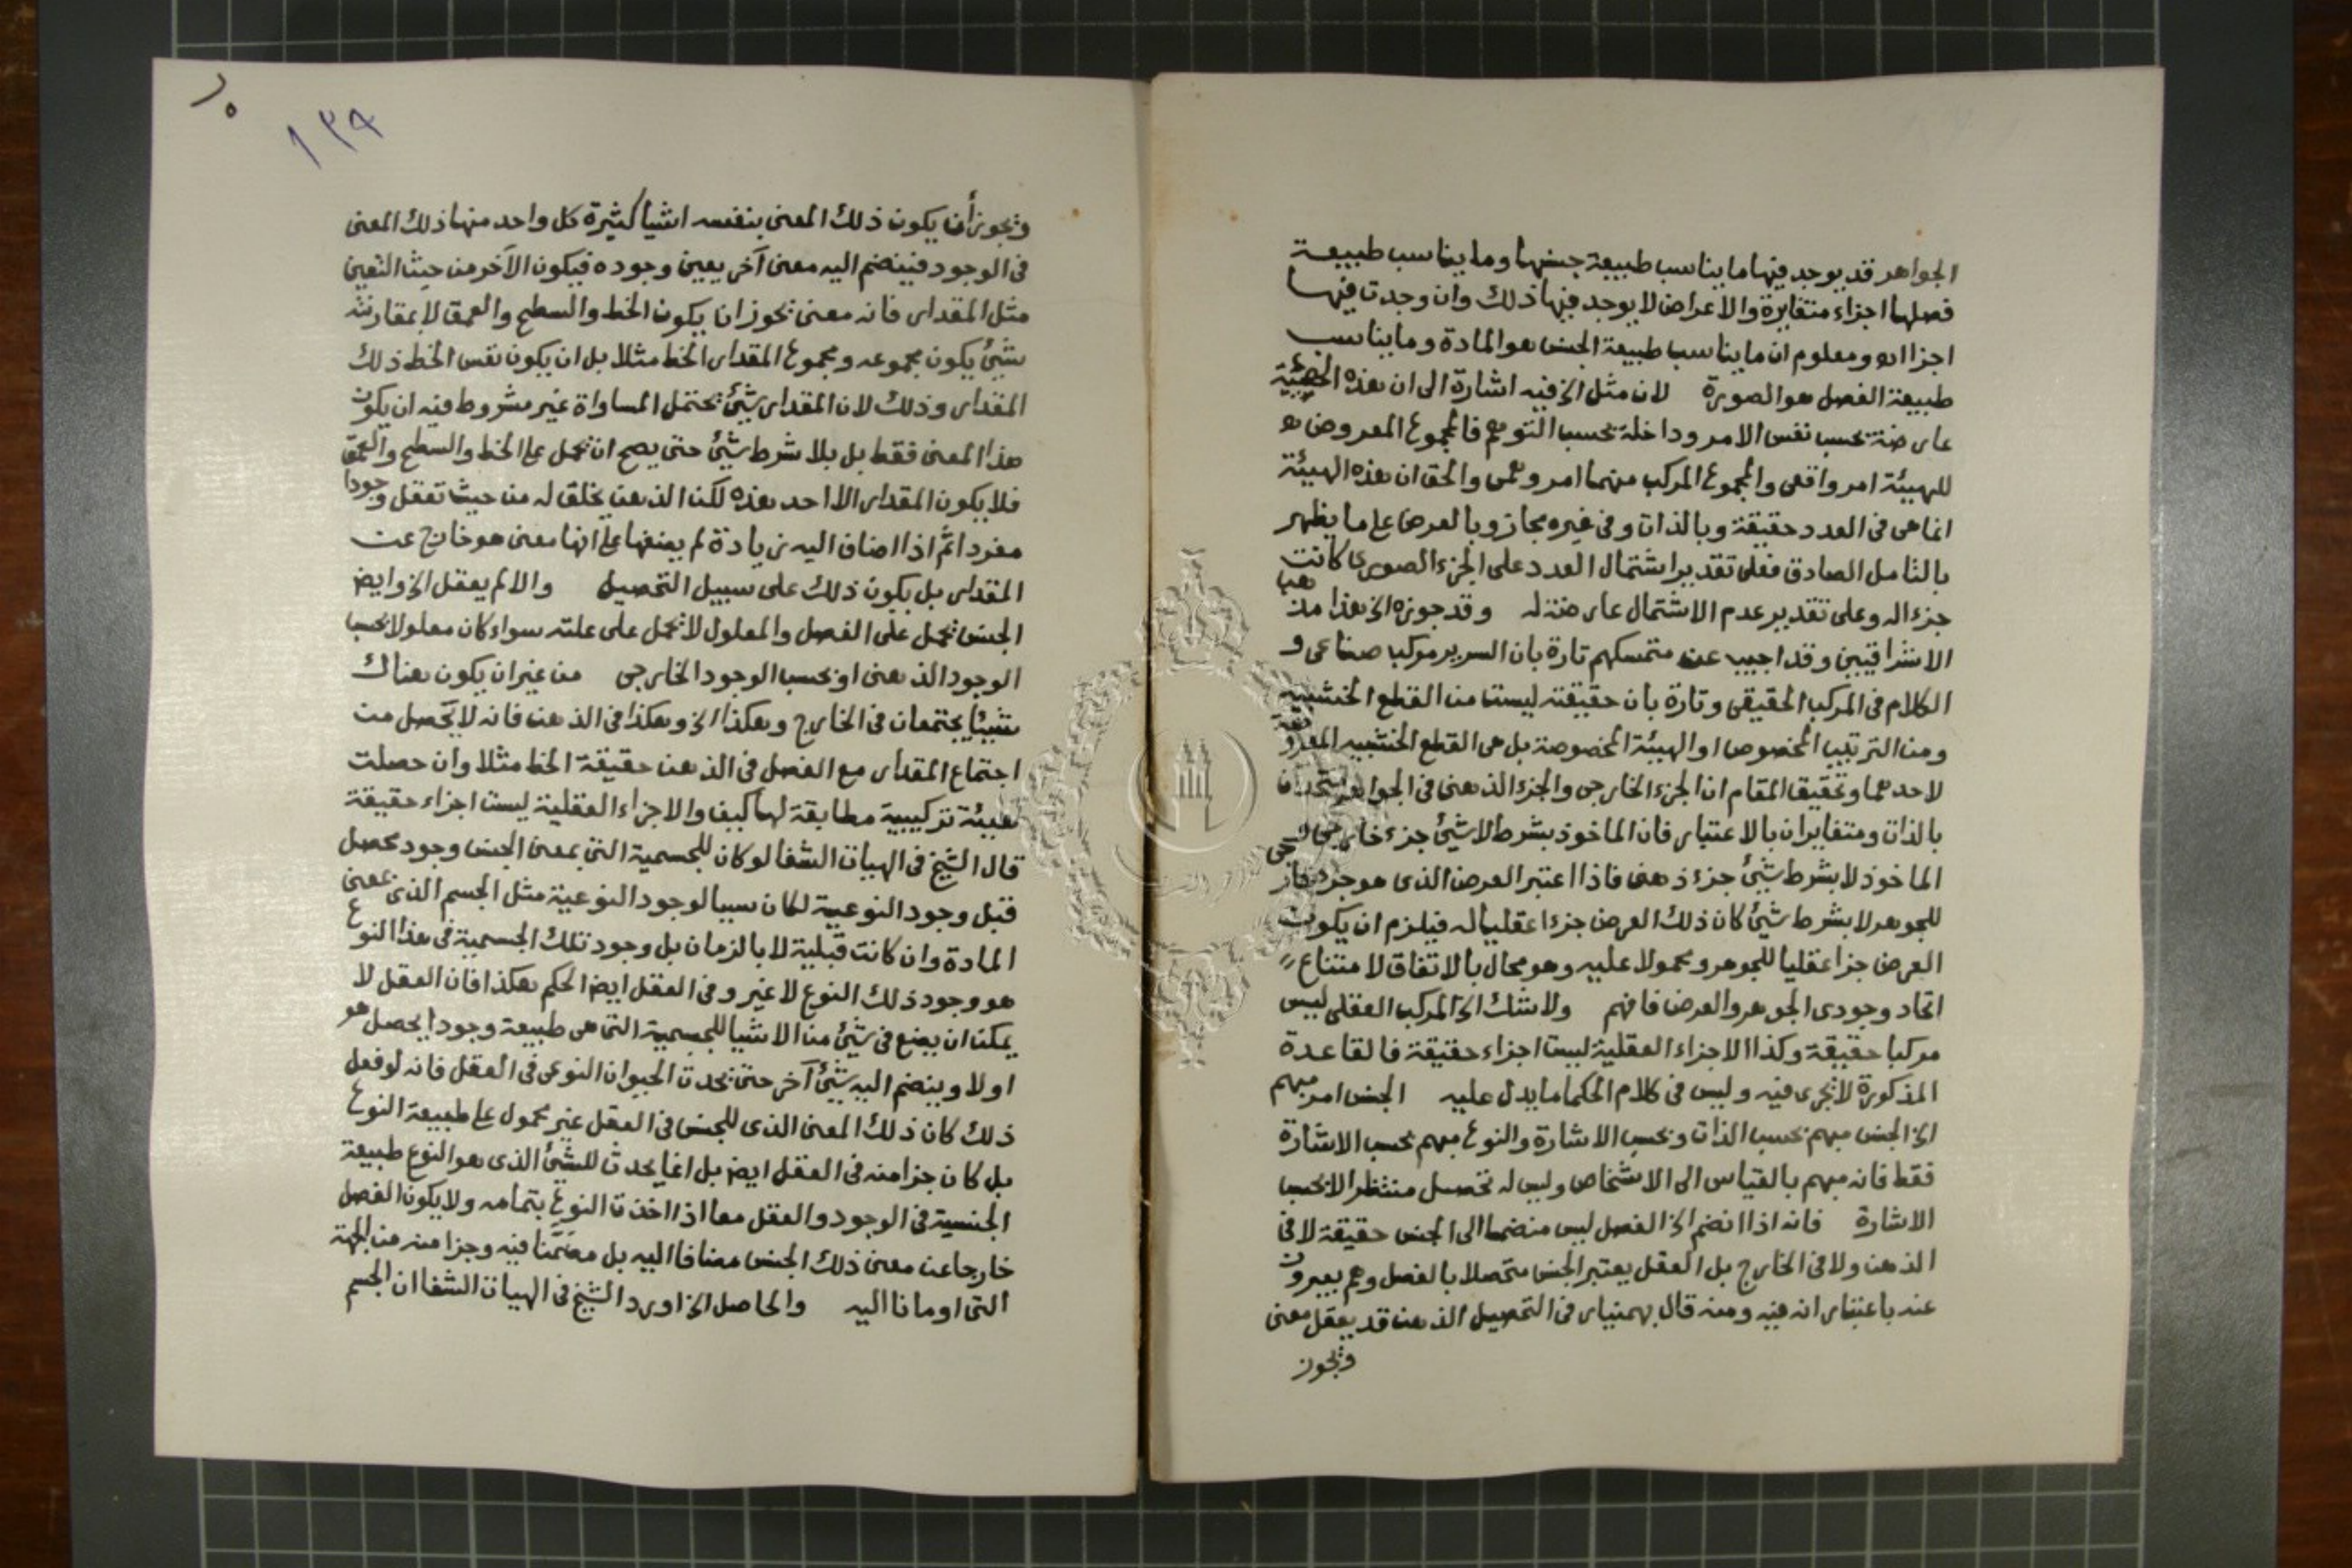 الجواهر قد يوجد فيها ما يناسب طبيعة جنسها وما يناسب طبيعة
فصلها اجزاء متغايرة والاعراض لا يوجد فيها ذلك وان وجدت فيها
اجزااه ومعلوم ان ما يناسب طبيعة الجنس هو المادة وما يناسب
طبيعة الفصل هو الصورة لان مثل الخ فيه اشارة الى ان هذه
عارضة بحسب نفس الامر وداخلة بحسب التوهم فالمجموع المعروض
للهيئة امر واقعى والمجموع المركب منهما امر وهمى والحق ان هذه الهيئة
انما هى فى العدد حقيقة وبالذات وفى غيره مجاز وبالعرض على ما يظهر
بالتامل الصادق فعلى تقدير اشتمال العدد على الجزء الصورى كانت
جزء اله وعلى تقدير عدم الاشتمال عارضة له وقد جوزه الخ هذا مذهب
الاشراقيين وقد اجيب عن متمسكهم تارة بان السرير مركب صناعى و
الكلام فى المركب الحقيقى وتارة بان حقيقته ليست من القطع الخشبيه
ومن الترتيب المخصوص او الهيئة المخصوصة بل هى القطع الخشبيه المعروضة
لاحدهما وتحقيق المقام ان الجزء الخارجى والجزء الذهنى فى الجواهر متحدان
بالذات ومتغايران بالاعتبار فان الماخوذ بشرط لا شيئ جزء خارجى و
الماخوذ لا بشرط شيئ جزء ذهنى فاذا اعتبر العرض الذى هو جزء خارجى
للجوهر لا بشرط شيئ كان ذلك العرض جزءا عقليا له فيلزم ان يكون
العرض جزا عقليا للجوهر ومحمولا عليه وهو محال بالاتفاق لامتناع
اتحاد وجودى الجوهر والعرض فافهم ولا شك الخ المركب العقلى ليس
مركبا حقيقة وكذا الاجزاء العقلية ليست اجزاء حقيقة فالقاعدة
المذكورة لا تجرى فيه وليس فى كلام الحكما ما يدل عليه الجنس امر مبهم
الخ الجنس مبهم بحسب الذات وبحسب الاشارة والنوع مبهم بحسب الاشارة
فقط فانه مبهم بالقياس الى الاشخاص وليس له تحصيل منتظر الا بحسب
الاشارة فانه اذا انضم الخ الفصل ليس منضما الى الجنس حقيقة لا فى
الذهن ولا فى الخارج بل العقل يعتبر الجنس متحصلا بالفصل وهم يعبرون
عنه باعتبار انه فيه ومنه قال بهمنيار فى التحصيل الذهن قد يعقل معنى
ويجوز
١٣٩
ويجوز أن يكون ذلك المعنى بنفسه اشيا كثيرة كل واحد منها ذلك المعنى
فى الوجود فينضم اليه معنى آخر يعين وجوده فيكون الآخر من حيث التعين
مثل المقدار فانه معنى يجوز ان يكون الخط والسطح والعمق لا بمقارنة
شيئ يكون مجموعه ومجموع المقدار الخط مثلا بل ان يكون نفس الخط ذلك
المقدار وذلك لان المقدار شيئ يحتمل المساواة غير مشروط فيه ان يكون
هذا المعنى فقط بل بلا شرط شيئ حتى يصح ان يحمل على الخط والسطح والعمق
فلا يكون المقدار الا احد هذه لكن الذهن يخلق له من حيث تعقل وجودا
مفردا ثم اذا اضاف اليه زيادة لم يضفها على انها معنى هو خارج عن
المقدار بل يكون ذلك على سبيل التحصيل والا لم يعقل الخ وايض
الجنس يحمل على الفصل والمعلول لا يحمل على علته سواء كان معلولا بحسب
الوجود الذهنى او بحسب الوجود الخارجى من غير ان يكون هناك
شيئا يجتمعان فى الخارج وهكذا الخ وهكذا فى الذهن فانه لا يحصل من
اجتماع المقدار مع الفصل فى الذهن حقيقة الخط مثلا وان حصلت
هيئة تركيبية مطابقة لها كيف والاجزاء العقلية ليست اجزاء حقيقة
قال الشيخ فى الهيات الشفا لو كان للجسمية التى بمعنى الجنس وجود محصل
قبل وجود النوعية لكان سببا لوجود النوعية مثل الجسم الذى بمعنى
المادة وان كانت قبلية لا بالزمان بل وجود تلك الجسمية فى هذا النوع
هو وجود ذلك النوع لا غير وفى العقل ايض الحكم هكذا فان العقل لا
يمكن ان يضع فى شيئ من الاشيا للجسمية التى هى طبيعة وجودا يحصل هو
اولا وينضم اليه شيئ آخر حتى يحدث الحيوان النوعى فى العقل فانه لو فعل
ذلك كان ذلك المعنى الذى للجنس فى العقل غير محمول على طبيعة النوع
بل كان جزا منه فى العقل ايض بل انما يحدث للشيئ الذى هو النوع طبيعة
الجنسية فى الوجود والعقل معا اذا اخذت النوع بتمامه ولا يكون الفصل
خارجا عن معنى ذلك الجنس مضافا اليه بل مضمنا فيه وجزا منه من الجهة
التى اومانا اليه والحاصل الخ اورد الشيخ فى الهيات الشفا ان الجسم